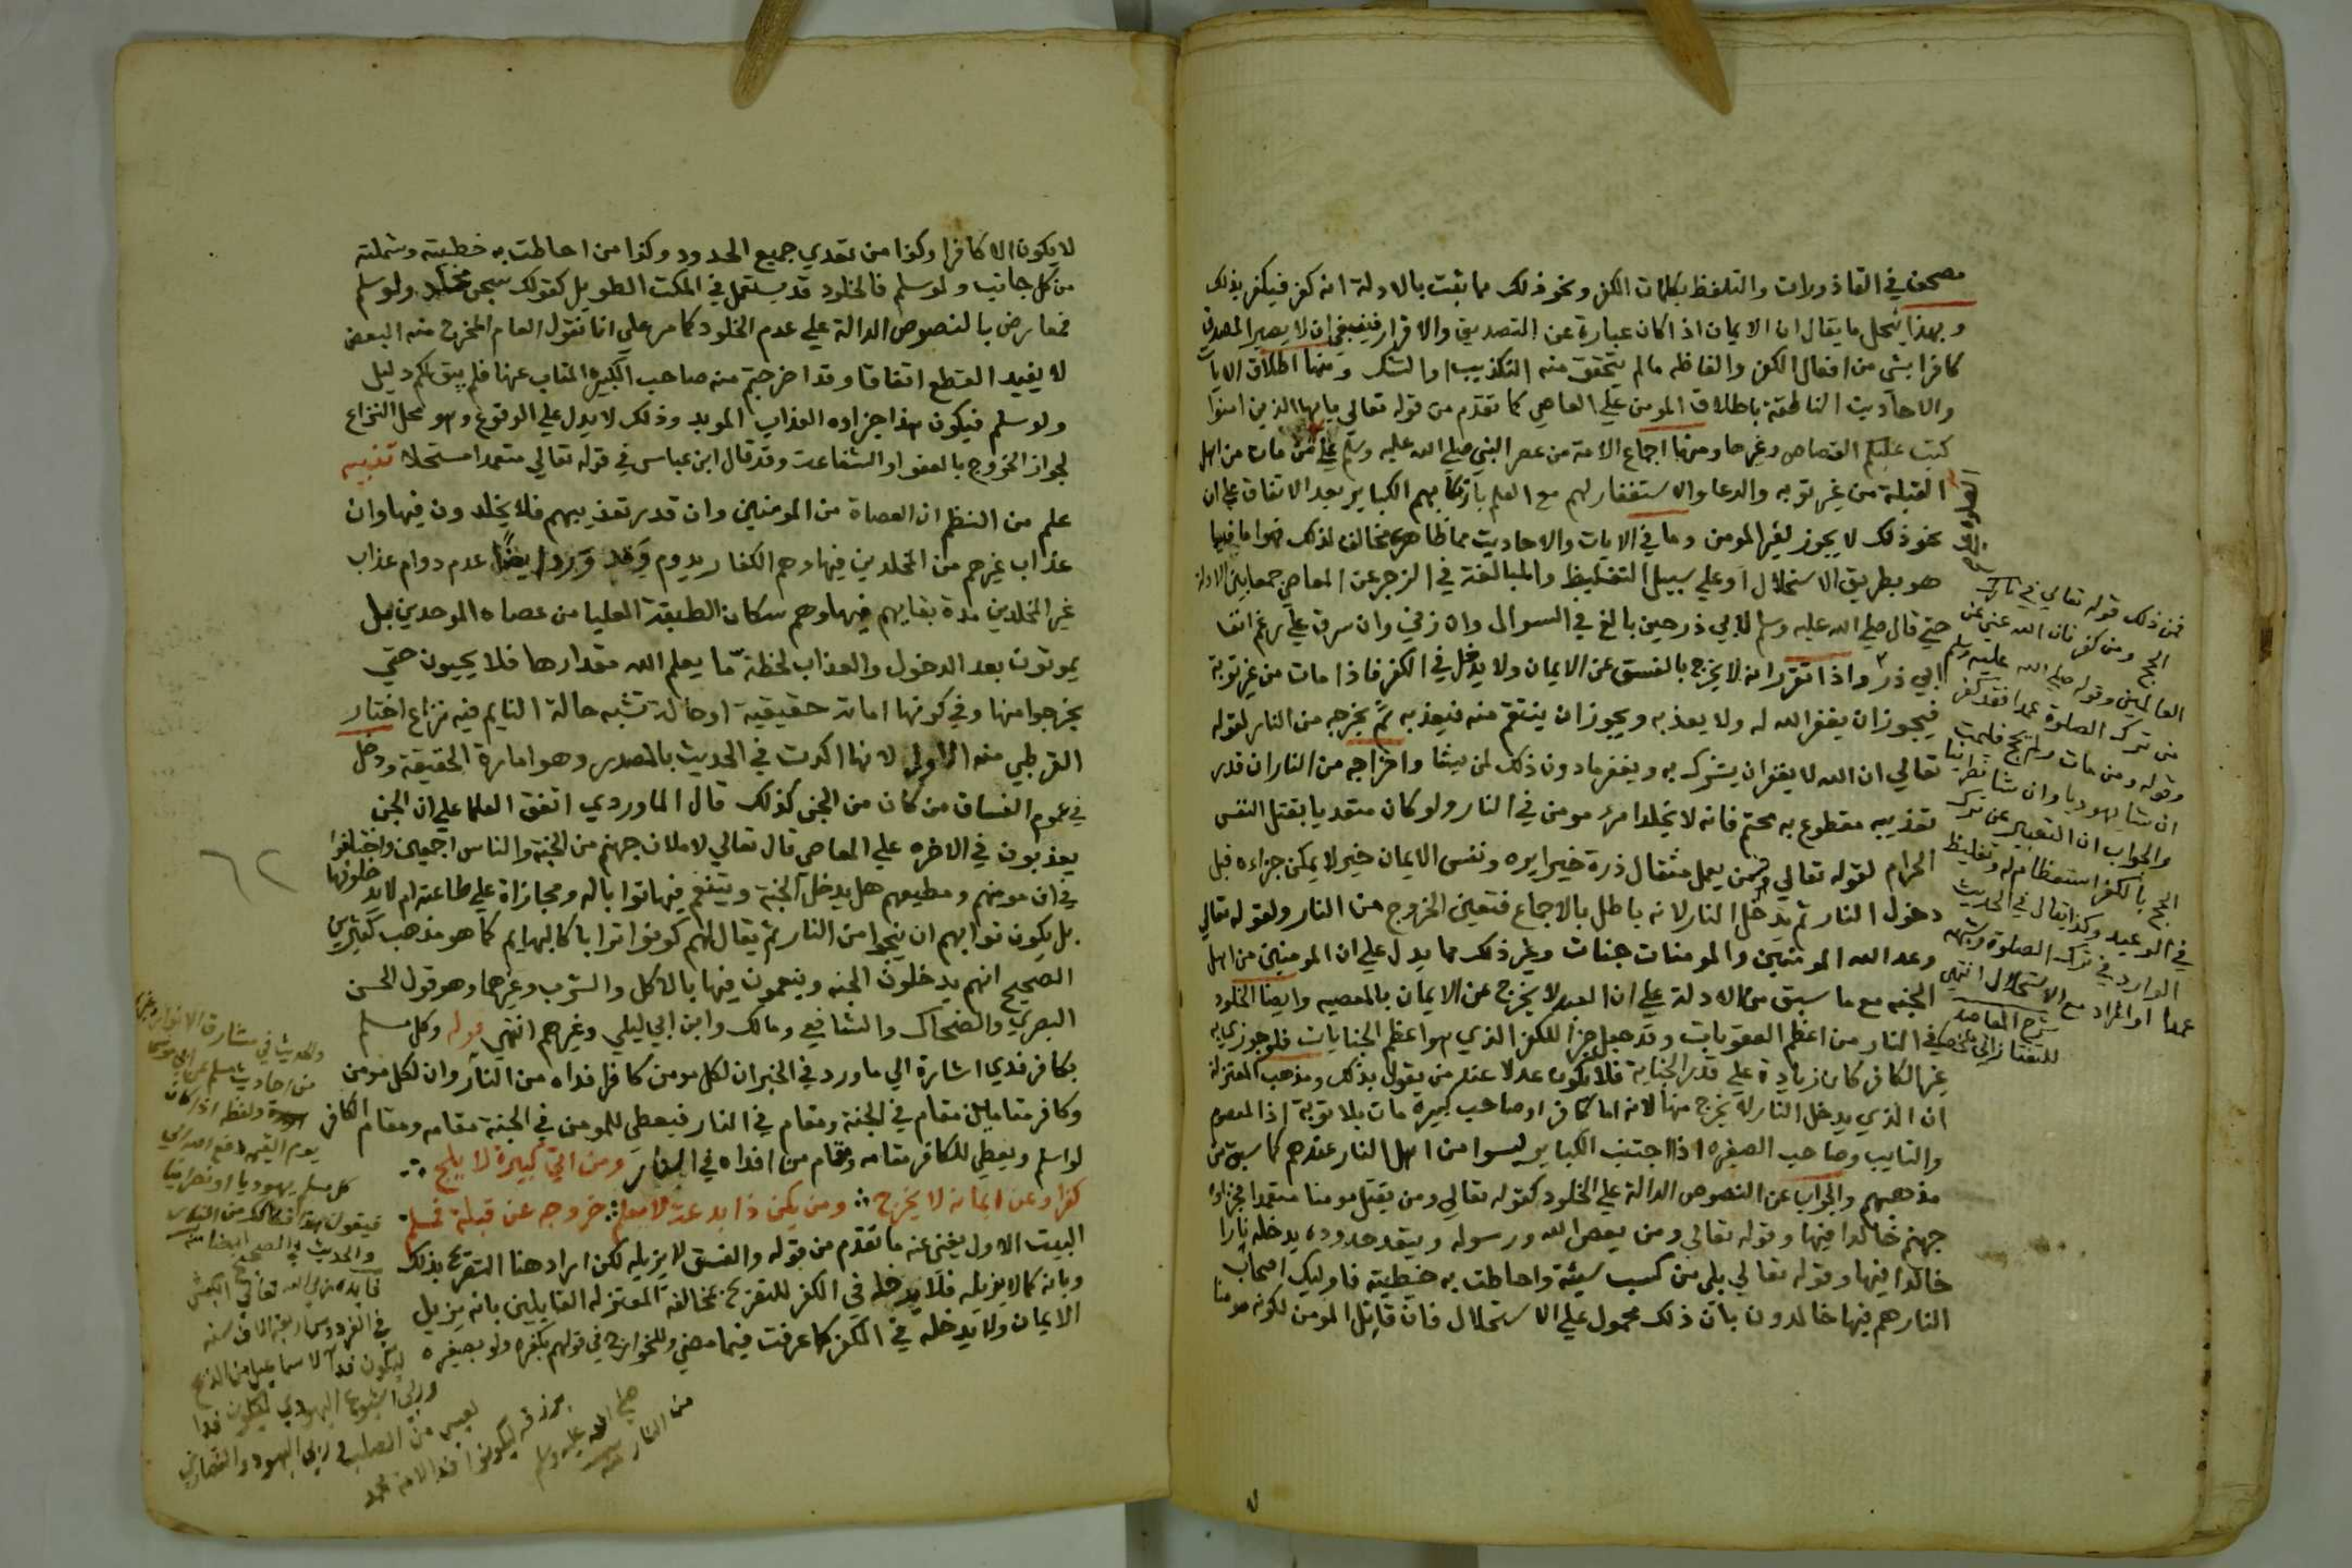 مصحف في القاذورات والتلفظ بكلمات الكفر ونحو ذلك مما ثبت بالادلة انه كفر فيكفر بذلك
وبهذا ينحل ما يقال ان الايمان اذا كان عبارة عن التصديق والاقرار فينبغي ان لا يصير المصدق
كافرا بشي من افعال الكفر والفاظه ما لم يتحقق منه التكذيب او الشك ومنها اطلاق الايات
والاحاديث الناطقة باطلاق المومن علي العاصي كما تقدم من قوله تعالي يايها الذين امنوا
كتب عليكم القصاص وغيرها ومنها اجماع الامة من عصر النبي صلي الله عليه وسلم علي من مات من اهل
القبلة من غير توبه والدعا والاستغفار لهم مع العلم بارتكابهم الكباير بعد الاتفاق علي ان
نحو ذلك لا يجوز لغير المومن وما في الايات والاحاديث مما ظاهره مخالف لذلك فهو اما فيما
هو بطريق الاستحلال او علي سبيل التغليظ والمبالغة في الزجر عن المعاصي جمعا بين الادلة
حتي قال صلي الله عليه وسلم لابي ذر حين بالغ في السوال وان زني وان سرق علي رغم انف
ابي ذر واذا تقرر انه لا يخرج بالفسق عن الايمان ولا يدخل في الكفر فاذا مات من غير توبة
فيجوز ان يغفر الله له ولا يعذبه ويجوز ان ينتقم منه فيعذبه ثم يخرجه من النار لقوله
تعالي ان الله لا يغفر ان يشرك به ويغفر ما دون ذلك لمن يشا واخراجه من النار ان قدر
تعذيبه مقطوع به محتم فانه لا يخلد امرء مومن في النار ولو كان متعديا بقتل النفس
الحرام لقوله تعالي فمن يعمل مثقال ذرة خيرا يره ونفس الايمان خير لا يمكن جزاءه قبل
دخول النار ثم يدخل النار لانه باطل بالاجماع فتعين الخروج من النار ولقوله تعالي
وعد الله المومنين والمومنات جنات وغير ذلك مما يدل علي ان المومنين من اهل
الجنه مع ما سبق من الادلة علي ان العبد لا يخرج عن الايمان بالمعصيه وايضا الخلود
في النار من اعظم العقوبات وقد جعل جزا للكفر الذي هو اعظم الجنايات فلو جوزي به
غير الكافر كان زيادة علي قدر الجناية فلا يكون عدلا عند من يقول بذلك ومذهب المعتزلة
ان الذي يدخل النار لا يخرج منها لانه اما كافر او صاحب كبيرة مات بلا توبة اذ المعصوم
والتايب وصاحب الصغيره اذا اجتنب الكباير ليسوا من اهل النار عندهم كما سبق من
مذهبهم والجواب عن النصوص الدالة علي الخلود كقوله تعالي ومن يقتل مومنا متعمدا فجزاوه
جهنم خالدا فيها وقوله تعالي ومن يعص الله ورسوله ويتعد حدوده يدخله نارا
خالدا فيها وقوله تعالي بلي من كسب سيئة واحاطت به خطيته فاوليك اصحاب
النار هم فيها خالدون بان ذلك محمول علي الاستحلال فان قاتل المومن لكونه مومنا
الصلوة
فمن ذلك قوله تعالي في تارك
الحج ومن كفر فان الله غني عن
العالمين وقوله صلي الله عليه وسلم
من ترك الصلوة عمدا فقد كفر
وقوله ومن مات ولم يحج فليمت
ان شا يهوديا وان شا نصرانيا
والجواب ان التعبير عن ترك
الحج بالكفر استعظام له وتغليظ
في الوعيد وكذا يقال في الحديث
الوارد في ترك الصلوة وشبهه
عمدا او المراد مع الاستحلال انتهي
شرح المقاصد
للتفتازاني
لا يكون الا كافرا وكذا من تعدي جميع الحدود وكذا من احاطت به خطيته وشملته
من كل جانب ولو سلم فالخلود قد يستعمل في المكث الطويل كقولك سجن مخلد ولو سلم
فمعارض بالنصوص الدالة علي عدم الخلود كما مر علي انا نقول العام المخرج منه البعض
لا يفيد القطع اتفاقا وقد اخرجتم منه صاحب الكبيره التايب عنها فلم يبق لكم دليل
ولو سلم فيكون هذا جزاوه العذاب الموبد وذلك لا يدل علي الوقوع وهو محل النزاع
لجواز الخروج بالعفو او الشفاعة وقد قال ابن عباس في قوله تعالي متعمدا مستحلا تنبيه
علم من النظم ان العصاة من المومنين وان قدر تعذيبهم فلا يخلدون فيها وان
عذاب غيرهم من المخلدين فيها وهم الكفار يدوم وقد ورد ايضا عدم دوام عذاب
غير المخلدين مدة بقايهم فيها وهم سكان الطبقة العليا من عصاه الموحدين بل
يموتون بعد الدخول والعذاب لحظة ما يعلم الله مقدارها فلا يحيون حتي
يخرجوا منها وفي كونها اماتة حقيقية او حالة تشبه حالة النايم فيه نزاع اختار
القرطبي منه الاول لانها اكدت في الحديث بالمصدر وهو امارة الحقيقة ودخل
في عموم الفساق من كان من الجن كذلك قال الماوردي اتفق العلما علي ان الجن
يعذبون في الاخره علي المعاصي قال تعالي لاملان جهنم من الجنة والناس اجمعين واختلفوا
في ان مومنهم ومطيعهم هل يدخل الجنة ويتنعم فيها ثوابا له ومجازاة علي طاعته ام لا يدخلونها
بل يكون ثوابهم ان ينجوا من النار ثم يقال لهم كونوا ترابا كالبهايم كما هو مذهب كثيرين
الصحيح انهم يدخلون الجنه وينعمون فيها بالاكل والشرب وغيرهما وهو قول الحسن
البصري والضحاك والشافعي ومالك وابن ابي ليلي وغيرهم انتهي قوله وكل مسلم
بكافر فدي اشارة الي ما ورد في الخبر ان لكل مومن كافرا فداه من النار وان لكل مومن
وكافر مقامين مقام في الجنة ومقام في النار فيعطي للمومن في الجنة مقامه ومقام الكافر
لو اسلم ويعطي للكافر مقامه ومقام من افداه في النار ومن اتي كبيرة لا يلج
كفرا وعن ايمانه لا يخرج ومن يكن ذا بدعة لا معلم خروجه عن قبلة فمسلم
البيت الاول يغني عنه ما تقدم من قوله والفسق لا يزيله لكن اراد هنا التصريح بذلك
وبانه كما لا يزيله فلا يدخله في الكفر للتصريح بمخالفة المعتزله القايلين بانه يزيل
الايمان ولا يدخله في الكفر كما عرفت فيما مضي وللخوارج في قولهم بكفره ولو بصغيره
٦٢
والحديث في مشارق الانوار
من احاديث مسلم عن ابي موسي
ولفظه اذا كان
يوم القيمه دفع الله الي
كل مسلم يهوديا او نصرانيا
فيقول هذا فكاكك من النار
والحديث في الصحيح ايضا
فايده ربي الله تعالي الكبش
في الفردوس اربعة الاف سنه
ليكون فدا لاسماعيل من الذبح
وربي اليهودي ليكون فدا
لعيسي من الصلب وربي اليهود والنصاري
برزقه ليكونوا فدا لامة محمد
صلي الله عليه وسلم
من النار